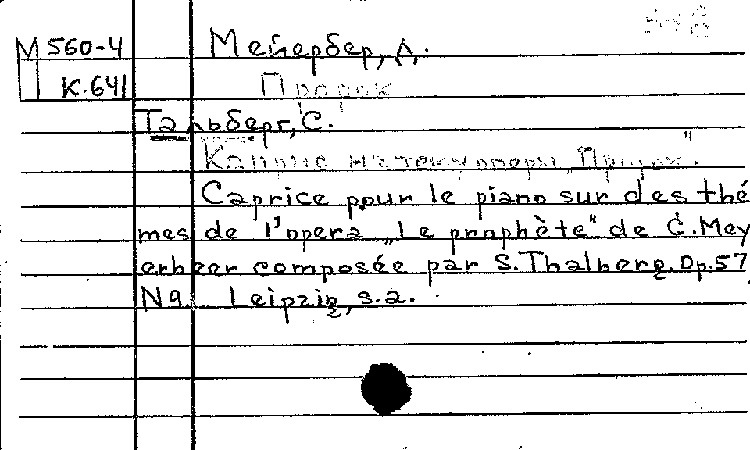 М 560-4 Мейербер, А.
К.641 Пророк
Тальберг, С.
Каприс на тему оперы „Пророк".
Caprice pour le piano sur des thé
mes de l'opera „le prophète" de C. Mey
erbeer composée par S. Thalberg. Op. 57
N9. Leipzig, s.a.